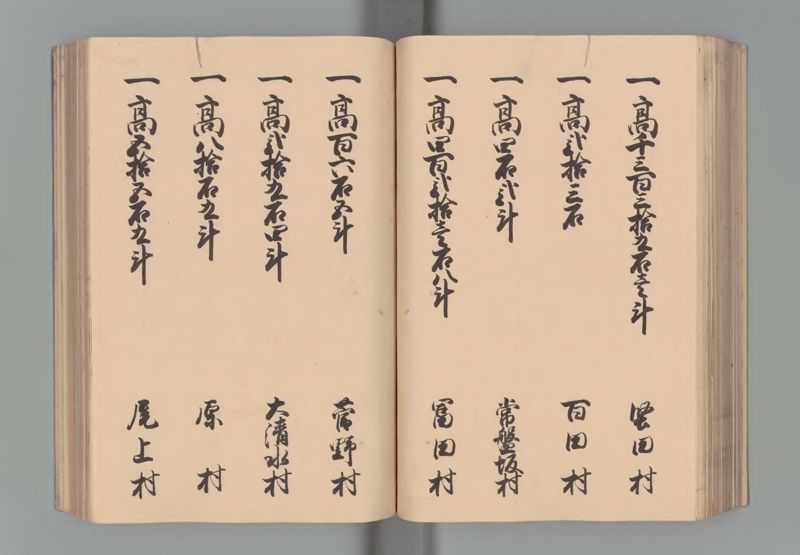 一高千三百三拾九石壱斗 堅田村
一高弐拾三石 百田村
一高四石弐斗 常盤坂村
一高四百弐拾壱石八斗 富田村
一高百六石五斗 菅野村
一高弐拾九石四斗 大清水村
一高八拾石九斗 原村
一高五拾五石九斗 尾上村